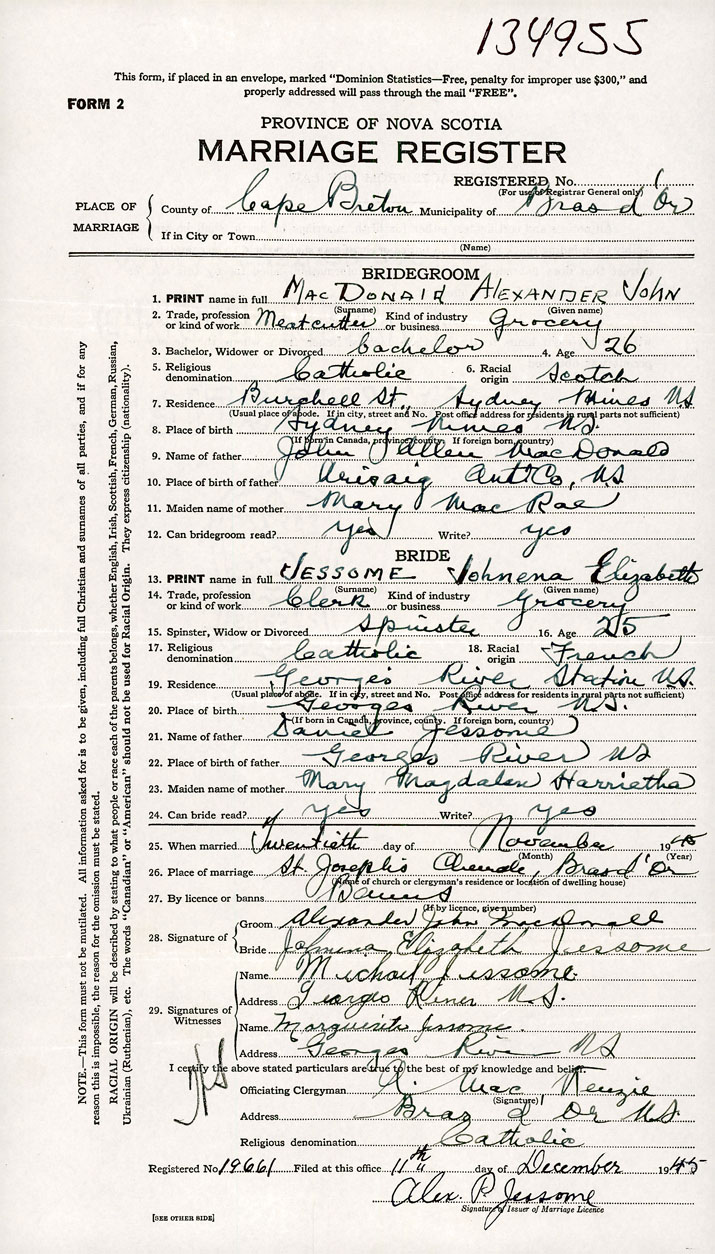 134955
This form, if placed in an envelope, marked "Dominion Statistics—Free, penalty for improper use $300," and
properly addressed will pass through the mail "FREE".
FORM 2
PROVINCE OF NOVA SCOTIA
MARRIAGE REGISTER
REGISTERED No.
(For use of Registrar General only)
PLACE OF MARRIAGE
County of Cape Breton Municipality of Bras d'Or
If in City or Town
(Name)
BRIDEGROOM
1. PRINT name in full MacDonald Alexander John
(Surname) (Given name)
2. Trade, profession or kind of work Meatcutter Kind of industry or business Grocery
3. Bachelor, Widower or Divorced Bachelor 4. Age 26
5. Religious denomination Catholic 6. Racial origin Scotch
7. Residence Burchell St., Sydney Mines NS
(Usual place of abode. If in city, street and No. Post office address for residents in rural parts not sufficient)
8. Place of birth Sydney Mines N.S.
(If born in Canada, province, county. If foreign born, country)
9. Name of father John Allen MacDonald
10. Place of birth of father Arisaig Ant Co, NS
11. Maiden name of mother Mary MacRae
12. Can bridegroom read? yes Write? yes
BRIDE
13. PRINT name in full Jessome Johnena Elizabeth
(Surname) (Given name)
14. Trade, profession or kind of work Clerk Kind of industry or business Grocery
15. Spinster, Widow or Divorced Spinster 16. Age 25
17. Religious denomination Catholic 18. Racial origin French
19. Residence Georges River Station N.S.
(Usual place of abode. If in city, street and No. Post office address for residents in rural parts not sufficient)
20. Place of birth Georges River N.S.
(If born in Canada, province, county. If foreign born, country)
21. Name of father Daniel Jessome
22. Place of birth of father Georges River NS
23. Maiden name of mother Mary Magdalen Harrietha
24. Can bride read? yes Write? yes
25. When married Twentieth day of November 1945
(Month) (Year)
26. Place of marriage St. Joseph's Church, Bras d'Or
(Name of church or clergyman's residence or location of dwelling house)
27. By licence or banns Banns
(If by licence, give number)
28. Signature of
Groom Alexander John MacDonald
Bride Johnina Elizabeth Jessome
29. Signatures of Witnesses
Name Michael Jessome
Address Georges River N.S.
Name Marguerite Jessome.
Address Georges River NS
I certify the above stated particulars are true to the best of my knowledge and belief.
Officiating Clergyman A. MacKenzie
(Signature)
Address Bras d'Or N.S.
Religious denomination Catholic
Registered No. 19661 Filed at this office 11th day of December 1945
Alex. P. Jessome
Signature of Issuer of Marriage Licence
[SEE OTHER SIDE]
NOTE.—This form must not be mutilated. All information asked for is to be given, including full Christian and surnames of all parties, and if for any
reason this is impossible, the reason for the omission must be stated.
RACIAL ORIGIN will be described by stating to what people or race each of the parents belongs, whether English, Irish, Scottish, French, German, Russian,
Ukrainian (Ruthenian), etc. The words "Canadian" or "American" should not be used for Racial Origin. They express citizenship (nationality).